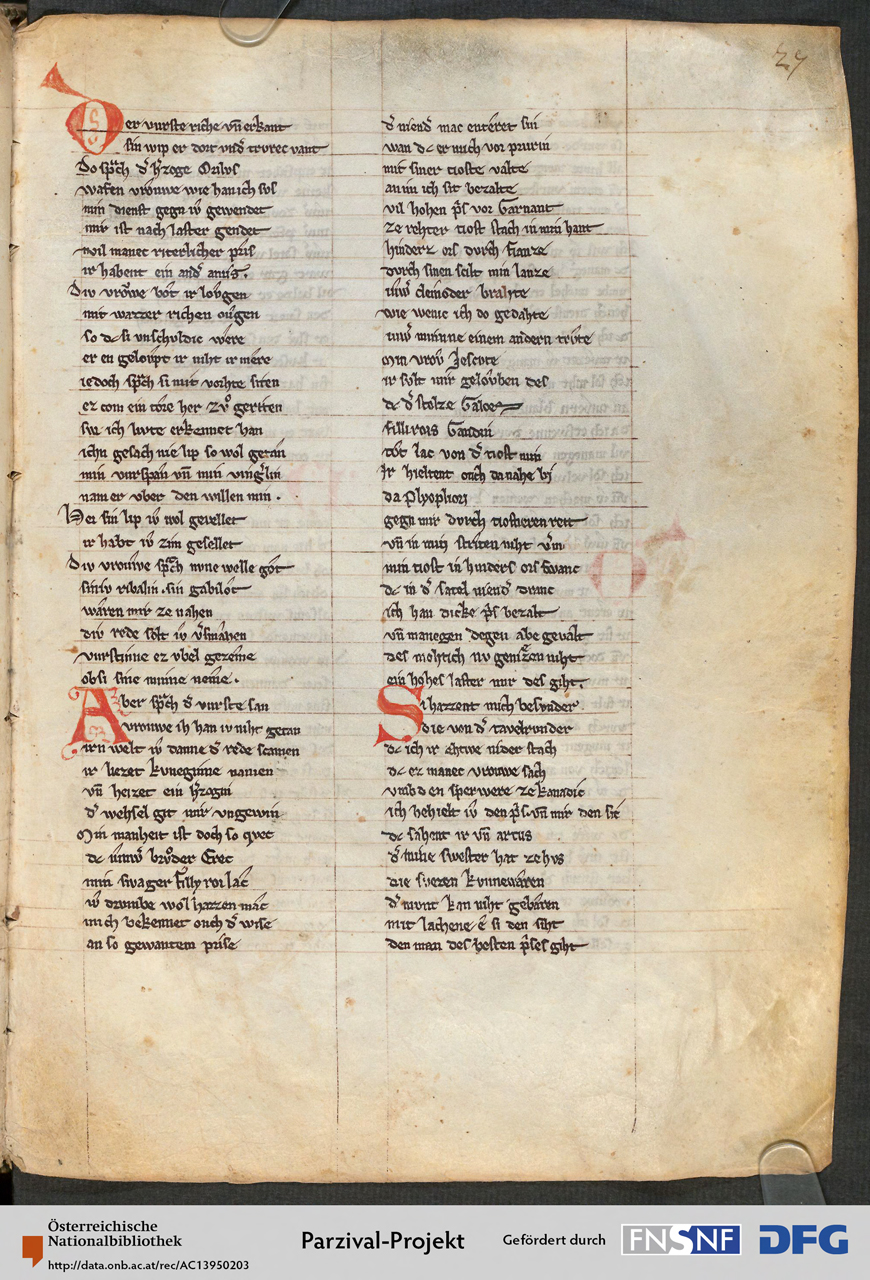 27
Der vurste riche vn̄ erkant
sin wip er dort vnd᷑ trvrec vant
Do sp᷑ch d᷑ h᷑zoge Orilvs
wafen vrouwe wie han ich svs
min dienst gegn iv gewendet
mir ist nach laster gendet
vil manec riterlicher pris
ir habent ein and᷑ amis.
Div vrowe bot ir lovgen
mit wazzer richen ougen
so dc si vnschuldic were
er en geloupt ir niht ir mere
iedoch sp᷑ch si mit vorhte siten
ez com ein tore her zvͦ geriten
swc ich lvte erkennet han
ichn gesach nie lip so wol getan
min vurspan vn̄ min ving᷑lin
nam er vber den willen min.
Hei sin lip iv wol gevellet
ir habt iv zim gesellet
Div vrouwe sp᷑ch nvne welle got
siniv ribalin. sin gabilot
waren mir ze nahen
div rede solt iv v᷑smahen
vurstinne ez vbel gezeme
ob si sine minne neme.
Aber sp᷑ch d᷑ vurste san
vrouwe ih han iv niht getan
irn welt iv danne d᷑ rede scamen
ir liezet kvneginne namen
vn̄ heizet ein h᷑zogin
d᷑ wehsel git mir vngewin
Min manheit ist doch so qvec
dc iuwᷣ brvͦder Erec
min swager filly roi lac
iv drumbe wol hazzen mac
mich bekennet ouch d᷑ wise
an so gewantem prise
d᷑ niend᷑ mac enteret sin
wan dc er mich vor prurin
mit siner tioste valte
an im ich sit bezalte
vil hohen p᷑s vor Garnant
ze rehter tiost stach in min hant
hinderz ors durch fianze
durch sinen scilt min lanze
iuwᷣ cleinoder brahte
wie wenic ich do gedahte
iuwᷣ minne einem andern trvte
Min vrov Jescvte
ir solt mir gelouben des
dc d᷑ stolze Galoes
fillirois Gandin
tot lac von d᷑ tiost min
Ir hieltent ouch da nahe bi
da Plyopliori
gegn mir durch tiostieren reit
vn̄ in min striten niht v᷑m
min tiost in hinders ors swanc
dc in d᷑ satel niend᷑ dranc
ich han dicke p᷑s bezalt
vn̄ manegen degen abe gevalt
des moht ich nv geniezen niht
ein hohes laster mir des giht.
Si hazzent mich besvnder
die von d᷑ tavelrvnder
dc ich ir ahtwe nider stach
dc ez manec vrouwe sach
vmb den sperwere ze kanadic
ich behielt iv den p᷑s. vn̄ mir den sic
dc sahent ir vn̄ artus
d᷑ mine swester hat ze hvs
die svezen kvnnewaren
d᷑ munt kan niht gebaren
mit lachene e si den siht
den man des hosten p᷑ses giht
Österreichische
Nationalbibliothek
http://data.onb.ac.at/rec/AC13950203
Parzival-Projekt
Gefördert durch
FNSNF
DFG